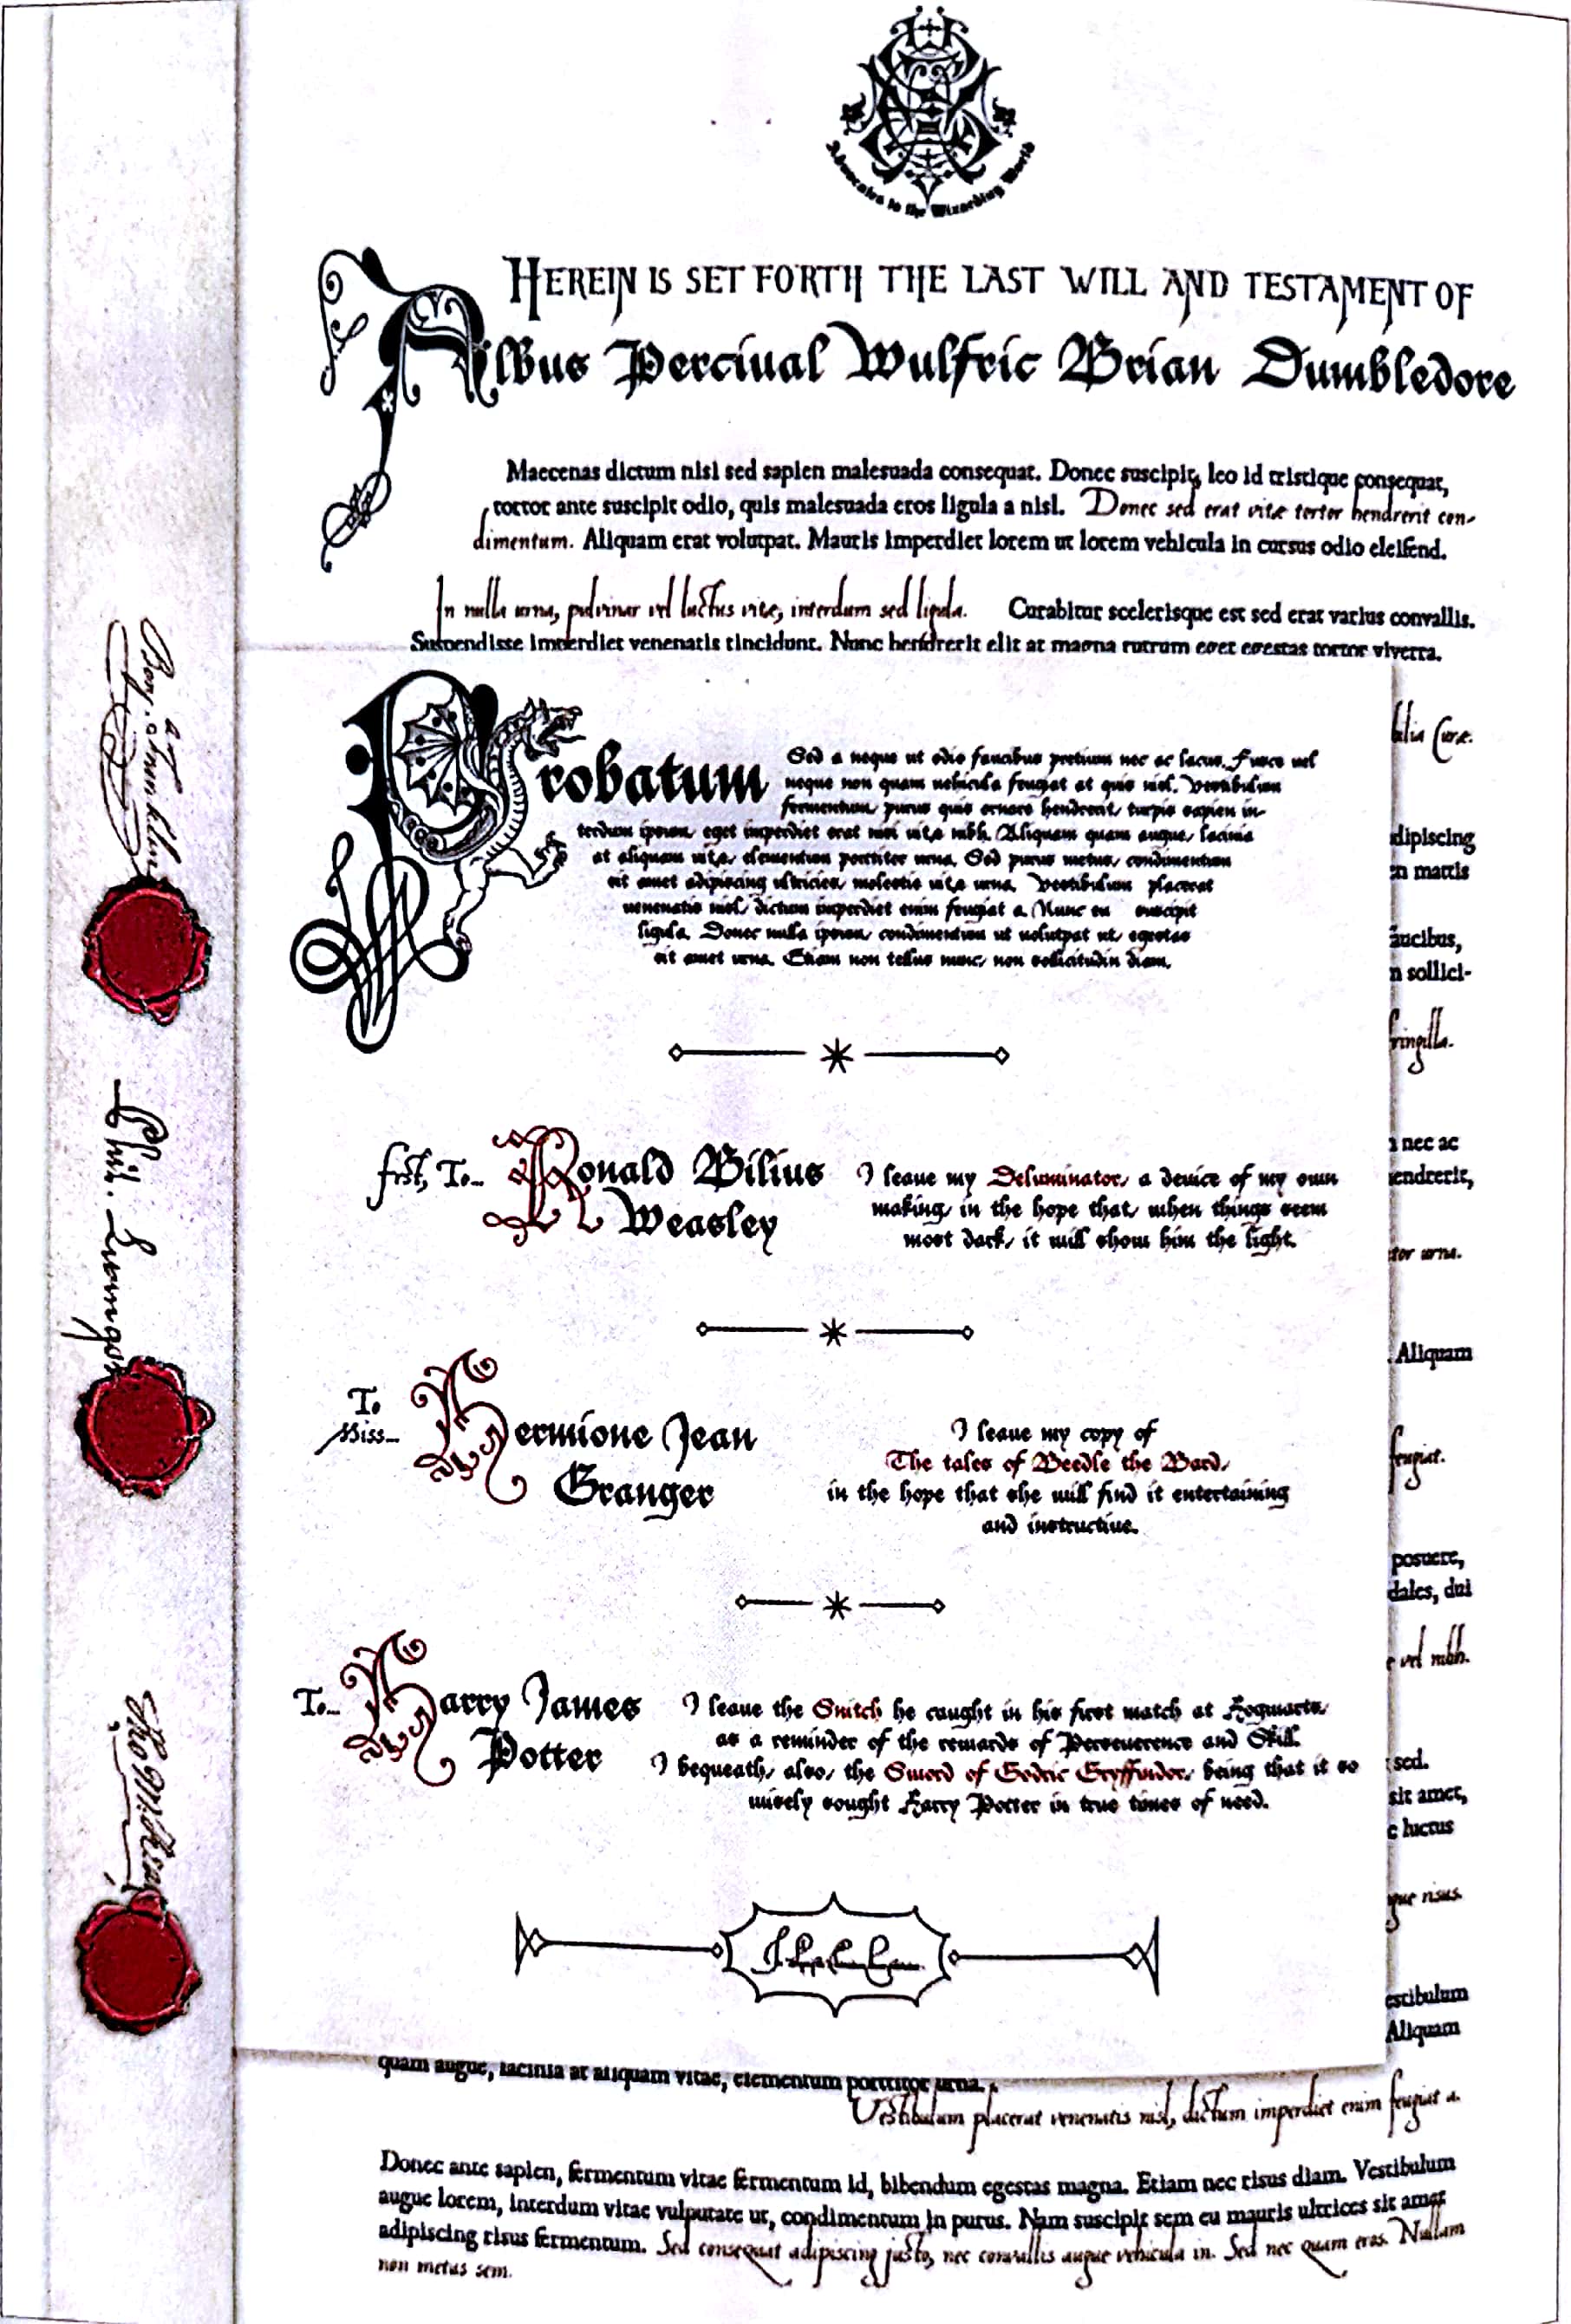 Advocates to the Wizarding World
HEREIN IS SET FORTH THE LAST WILL AND TESTAMENT OF
Albus Percival Wulfric Brian Dumbledore
Maecenas dictum nisl sed sapien malesuada consequat. Donec suscipit, leo id tristique consequat,
tortor ante suscipit odio, quis malesuada eros ligula a nisl. Donec sed erat vitæ tortor hendrerit con-
dimentum. Aliquam erat volutpat. Mauris imperdiet lorem ut lorem vehicula in cursus odio eleifend.
In nulla urna, pulvinar vel luctus vitæ, interdum sed ligula. Curabitur scelerisque est sed erat varius convallis.
Suspendisse imperdiet venenatis tincidunt. Nunc hendrerit elit at magna rutrum eget egestas tortor viverra.
Probatum
Sed a neque ut odio faucibus pretium nec ac lacus. Fusce vel
neque non quam vehicula feugiat at quis nisl. Vestibulum
fermentum purus quis ornare hendrerit, turpis sapien in-
terdum ipsum, eget imperdiet erat nisi vitæ nibh. Aliquam quam augue, lacinia
at aliquam vitæ, elementum porttitor urna. Sed purus metus, condimentum
sit amet adipiscing ultricies, molestie vitæ urna. Vestibulum placerat
venenatis nisl, dictum imperdiet enim feugiat a. Nunc eu suscipit
ligula. Donec nulla ipsum, condimentum ut volutpat ut, egestas
sit amet urna. Etiam non tellus nunc, non sollicitudin diam.
first, To... Ronald Bilius
Weasley
I leave my Deluminator, a device of my own
making, in the hope that, when things seem
most dark, it will show him the light.
To
Miss...
Hermione Jean
Granger
I leave my copy of
The tales of Beedle the Bard,
in the hope that she will find it entertaining
and instructive.
To... Harry James
Potter
I leave the Snitch he caught in his first match at Hogwarts,
as a reminder of the rewards of Perseverence and Skill.
I bequeath, also, the Sword of Godric Gryffindor, being that it so
wisely sought Harry Potter in true times of need.
dipiscing
mattis
sollici-
fringilla.
nec ac
urna.
Aliquam
feugiat.
posuere,
dui
vel nibh.
sed.
sit amet,
luctus
risus.
Aliquam
quam augue, lacinia at aliquam vitae, elementum porttitor urna.
Vestibulum placerat venenatis nisl, dictum imperdiet enim feugiat a.
Donec ante sapien, fermentum vitae fermentum id, bibendum egestas magna. Etiam nec risus diam. Vestibulum
augue lorem, interdum vitae vulputate ut, condimentum in purus. Nam suscipit sem eu mauris ultrices sit amet
adipiscing risus fermentum. Sed consequat adipiscing justo, nec convallis augue vehicula in. Sed nec quam eros. Nullam
non metus sem.